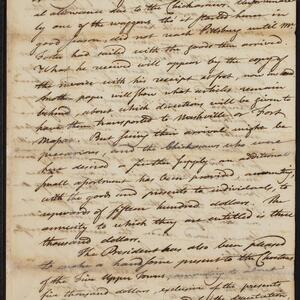 allowance due to the Chickasaws, unfortunately
by one of the waggons, tho' it started hence in
good season, did not reach Pittsburg until Mr
Foster had sailed with the goods then arrived
What he received will appear by the copy of
the invoice with his receipt at foot, now sent
Another paper will shew what articles remain
behind about which directions will be given to
have them transported to Nashville or Fort
Massac. But fearing their arrival might be
precarious, and the Chickasaws who were
here desired a further supply, an additional
small assortment has been provided, amounting,
with the goods and presents to individuals, to
upwards of fifteen hundred dollars. The
annuity to which they are entitled is three
thousand dollars.
The President has also been pleased
to make some present to the Cherokees
of the Upper Towns
five thousand dollars, exclusive of the presents